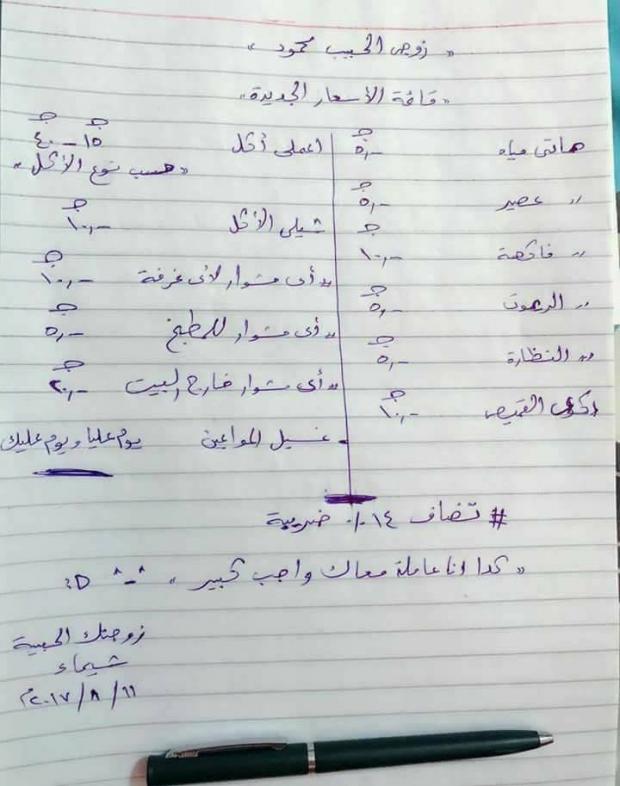 « زوجى الحبيب محمود »
« قائمة الأسعار الجديدة »
هاتى مياه ٥,- ج
〃 عصير ٥,- ج
〃 فاكهة ١٠,- ج
〃 الريموت ٥,- ج
〃 النظارة ٥,- ج
اكوى القميص ١٠,- ج
اعملى أكل ١٥ ج - ٤٠ ج
« حسب نوع الأكل »
شيلى الأكل ١٠,- ج
〃 أى مشوار لأى غرفة ١٠,- ج
〃 أى مشوار للمطبخ ٥,- ج
〃 أى مشوار خارج البيت ٢٠,- ج
- غسيل المواعين يوم عليا ويوم عليك
# تضاف ١٤٪ ضريبة
« كدا انا عاملة معاك واجب كبير » ^-^ :D
زوجتك الحبيبة
شيماء
١١/٨/٢٠١٧م